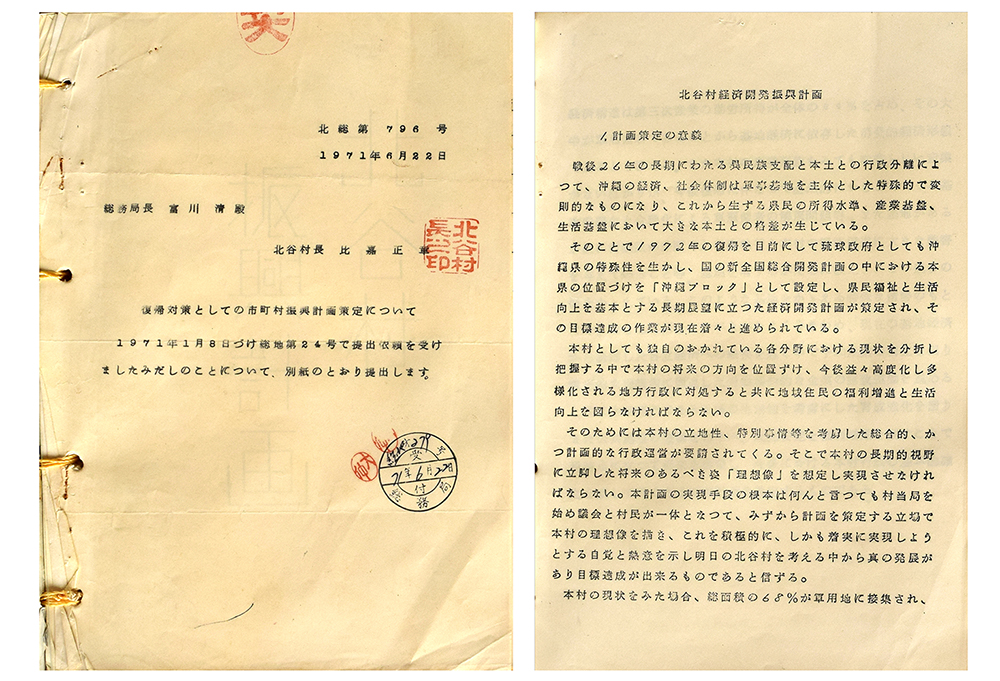 北総第 796 号
1971年6月22日
総務局長 富川 清 殿
北谷村長 比嘉正
北谷村長之印
復帰対策としての市町村振興計画策定について
1971年1月8日づけ総地第24号で提出依頼を受け
ましたみだしのことについて、別紙のとおり提出します。
受付
71年6月22日
総務局
北谷村経済開発振興計画
1.計画策定の意義
戦後26年の長期にわたる異民族支配と本土との行政分離によ
つて、沖縄の経済、社会体制は軍事基地を主体とした特殊的で変
則的なものになり、これから生ずる県民の所得水準、産業基盤、
生活基盤において大きな本土との格差が生じている。
そのことで1972年の復帰を目前にして琉球政府としても沖
縄県の特殊性を生かし、国の新全国総合開発計画の中における本
県の位置づけを「沖縄ブロック」として設定し、県民福祉と生活
向上を基本とする長期展望に立つた経済開発計画が策定され、そ
の目標達成の作業が現在着々と進められている。
本村としても独自のおかれている各分野における現状を分析し
把握する中で本村の将来の方向を位置ずけ、今後益々高度化し多
様化される地方行政に対処すると共に地域住民の福利増進と生活
向上を図らなければならない。
そのためには本村の立地性、特別事情等を考慮した総合的、か
つ計画的な行政運営が要請されてくる。そこで本村の長期的視野
に立脚した将来のあるべき姿「理想像」を想定し実現させなけれ
ばならない。本計画の実現手段の根本は何んと言つても村当局を
始め議会と村民が一体となつて、みずから計画を策定する立場で
本村の理想像を描き、これを積極的に、しかも着実に実現しよう
とする自覚と熱意を示し明日の北谷村を考える中から真の発展が
あり目標達成が出来るものであると信ずる。
本村の現状をみた場合、総面積の68%が軍用地に接集され、